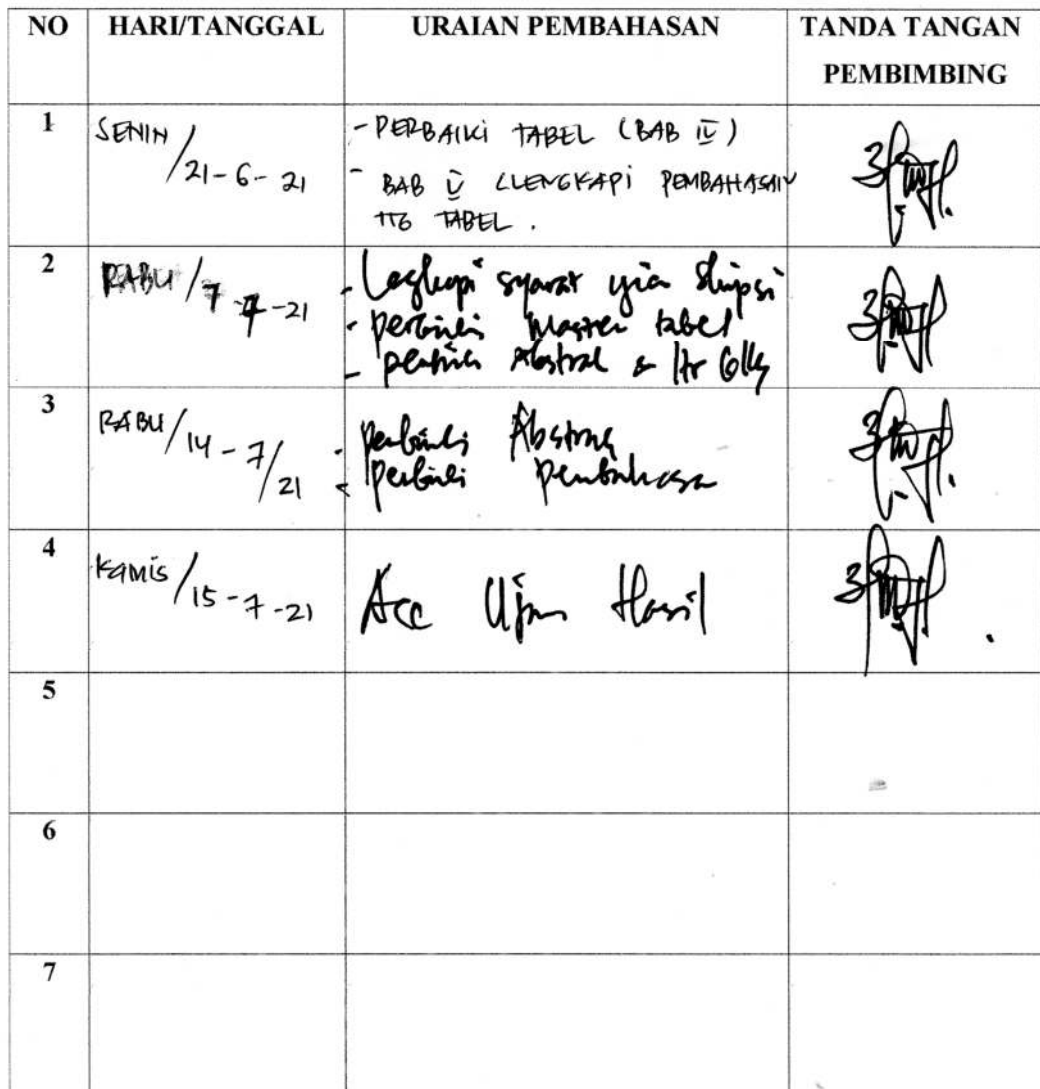 NO HARI/TANGGAL URAIAN PEMBAHASAN TANDA TANGAN
PEMBIMBING
1 SENIN/21-6-21 - PERBAIKI TABEL (BAB IV)
- BAB V LENGKAPI PEMBAHASAN
TTG TABEL.
2 RABU/7-7-21 - Lengkapi syarat ujian skripsi
- perbaiki Master tabel
- perbaiki Abstrak &
3 RABU/14-7/21 - perbaiki Abstrak
- perbaiki pembahasan
4 KAMIS/15-7-21 Acc Ujian Hasil
5
6
7